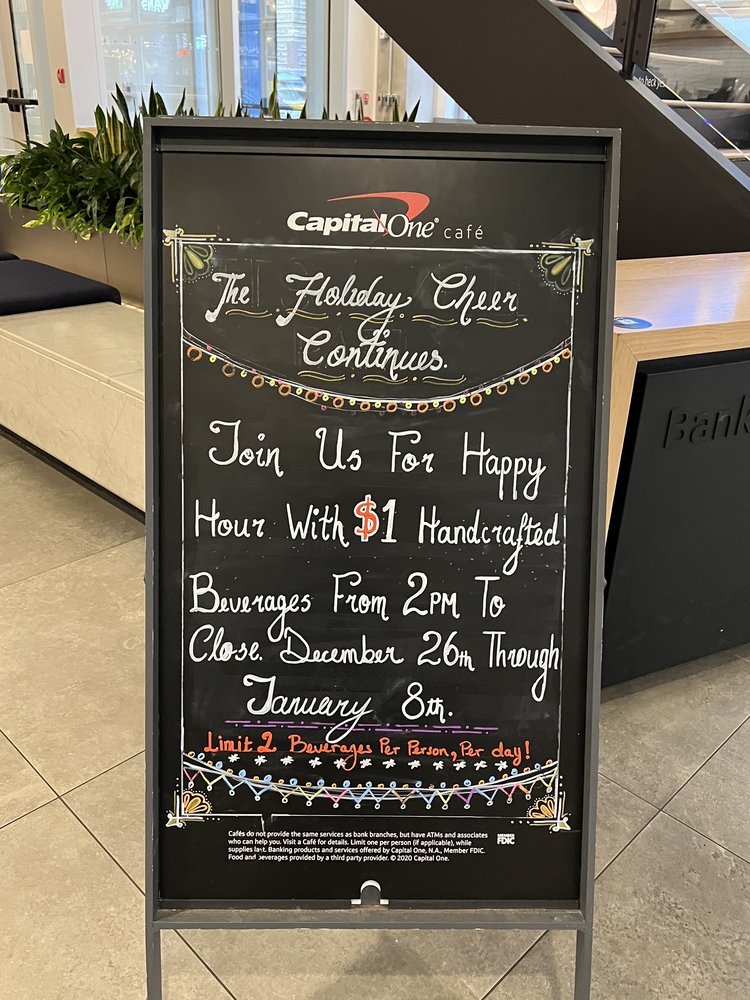 Capital One® café
The Holiday Cheer
Continues.
Join Us For Happy
Hour With $1 Handcrafted
Beverages From 2PM To
Close. December 26th Through
January 8th.
Limit 2 Beverages Per Person, Per day!
Cafés do not provide the same services as bank branches, but have ATMs and associates
who can help you. Visit a Café for details. Limit one per person (if applicable), while
supplies last. Banking products and services offered by Capital One, N.A., Member FDIC.
Food and beverages provided by a third party provider. © 2020 Capital One.
MEMBER
FDIC
Bank
VANS
to heck yes